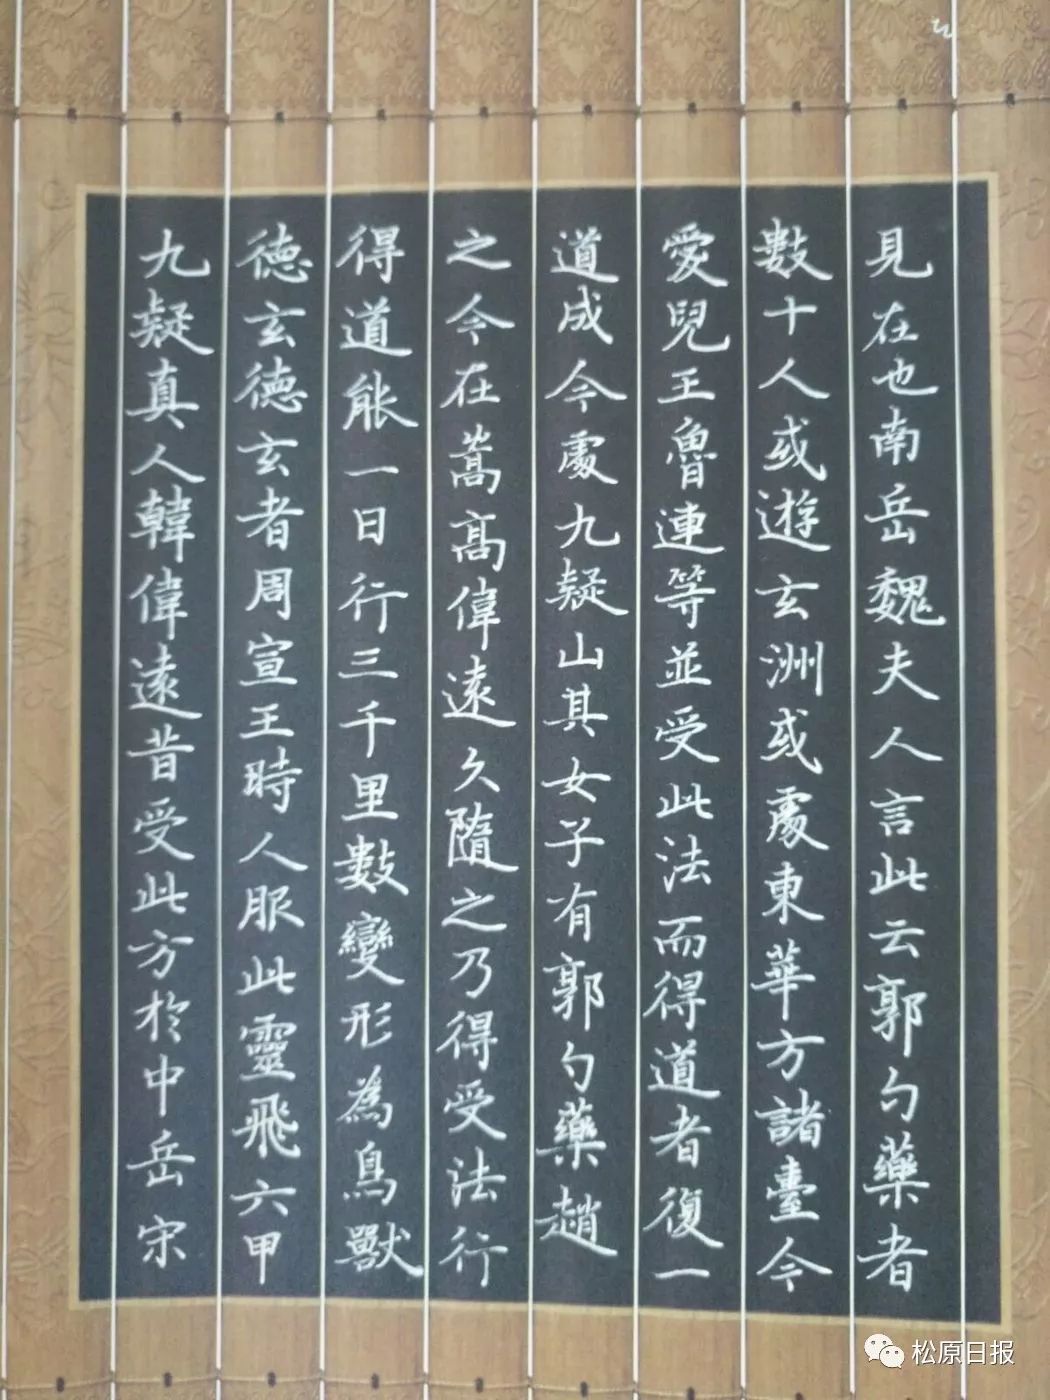 九疑真人韓偉遠昔受此方於中岳宋
德玄德玄者周宣王時人服此靈飛六甲
得道能一日行三千里數變形為鳥獸
之今在嵩高偉遠久隨之乃得受法行
道成今處九疑山其女子有郭勺藥趙
愛兒王魯連等並受此法而得道者復一
數十人或遊玄洲或處東華方諸臺今
見在也南岳魏夫人言此云郭勺藥者
松原日报